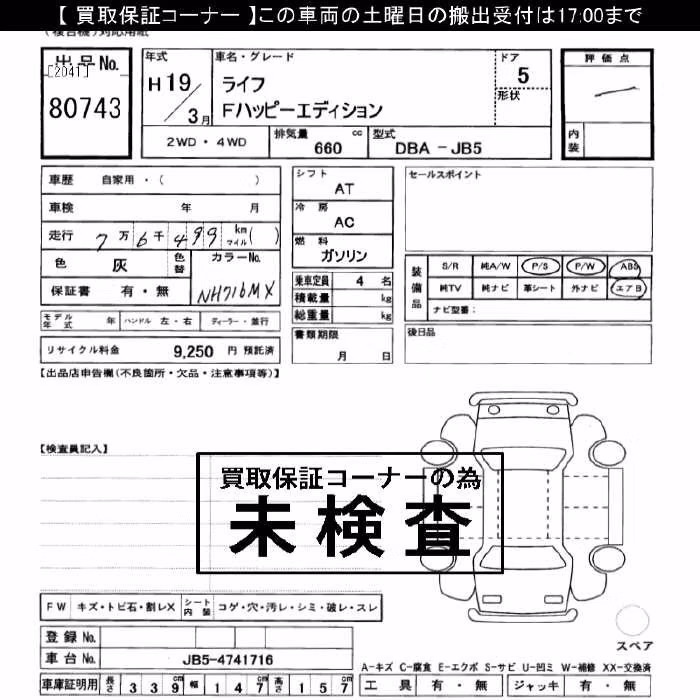 【 買取保証コーナー 】この車両の土曜日の搬出受付は17:00まで
(複合機)対応用紙
出品No.
[2041]
80743
年式
H 19 / 3月
車名・グレード
ライフ
Fハッピーエディション
ドア
5
形状
評価点
内装
2WD・4WD
排気量 660 cc
型式 DBA - JB5
車歴 自家用・( )
車検 年 月
走行 7万 6千 499 km マイル ( )
色 灰 色替
カラーNo.
NH716MX
保証書 有・無
シフト
AT
冷房
AC
燃料
ガソリン
乗車定員 4 名
積載量 kg
総重量 kg
セールスポイント
装備品
S/R 純A/W P/S P/W ABS
純TV 純ナビ 革シート 外ナビ エアB
ナビ型番:
モデル年式 年 ハンドル 左・右 ディーラー・並行
書類期限
月 日
後日品
リサイクル料金 9,250 円 預託済
【出品店申告欄(不良箇所・欠品・注意事項等)】
【検査員記入】
買取保証コーナーの為
未検査
FW キズ・トビ石・割レX シート内装 コゲ・穴・汚レ・シミ・破レ・スレ
登録No.
車台No. JB5-4741716
スペア
A-キズ C-腐食 E-エクボ S-サビ U-凹ミ W-補修 XX-交換済
車庫証明用 長さ 339 cm 幅 147 cm 高さ 157 cm
工具 有・無 ジャッキ 有・無